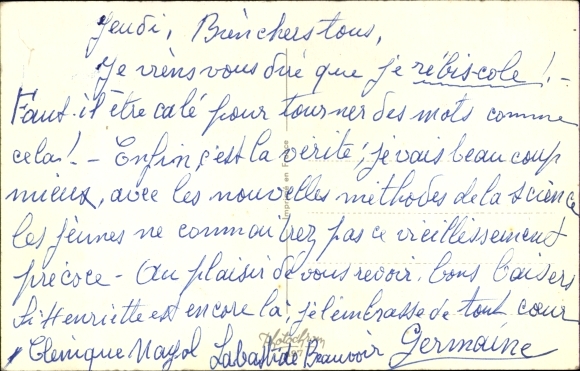 Jeudi, Bien chers tous,
Je viens vous dire que je rébiscole ! -
Faut-il être calé pour tourner des mots comme
cela ! - Enfin, c'est la vérité, je vais beaucoup
mieux, avec les nouvelles méthodes de la science
les jeunes ne connaitrez pas ce vieillissement
précoce - Au plaisir de vous revoir. bons baisers
Si Henriette est encore là, je l'embrasse de tout cœur
Clinique Labastide Beauvoir Germaine
Imprimé en France